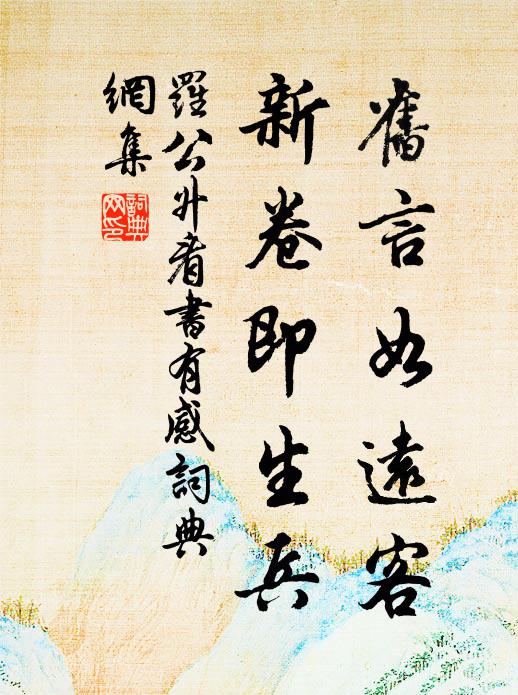 舊言如遠客
新卷即生兵
羅公升看書有感詞典
網集
詞典
网印